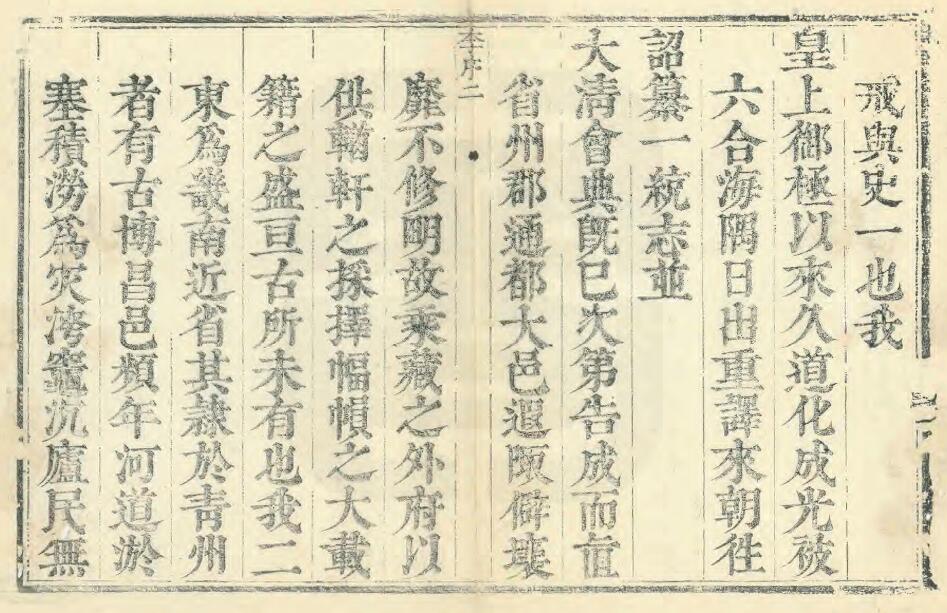 戒與史一也我
皇上御極以來久道化成光被
六合海隅日出重譯來朝往
詔纂一統志並
大清會典旣已次第告成而直
省州郡通都大邑遐陬僻壤
靡不修明故乘藏之外府以
供輶軒之採擇幅幀之大載
籍之盛亘古所未有也我二
東爲畿南近省其隷於靑州
者有古博昌邑頻年河道淤
塞積澇爲灾洿竈沉廬民無
李序二